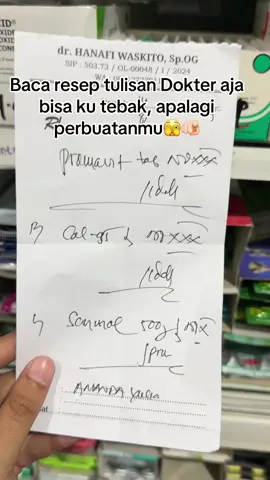 dr. HANAFI WASKITO, Sp.OG
SIP : 503.73 / OL-00048 / I / 2024
Baca resep tulisan Dokter aja
bisa ku tebak, apalagi
perbuatanmu🫣🫵🏻
R/
Promavit tab no XXX
/1dd1
R/ Cal-95 no XXX
/1dd1
Sanmol 500 no X
/prn
AMANDA